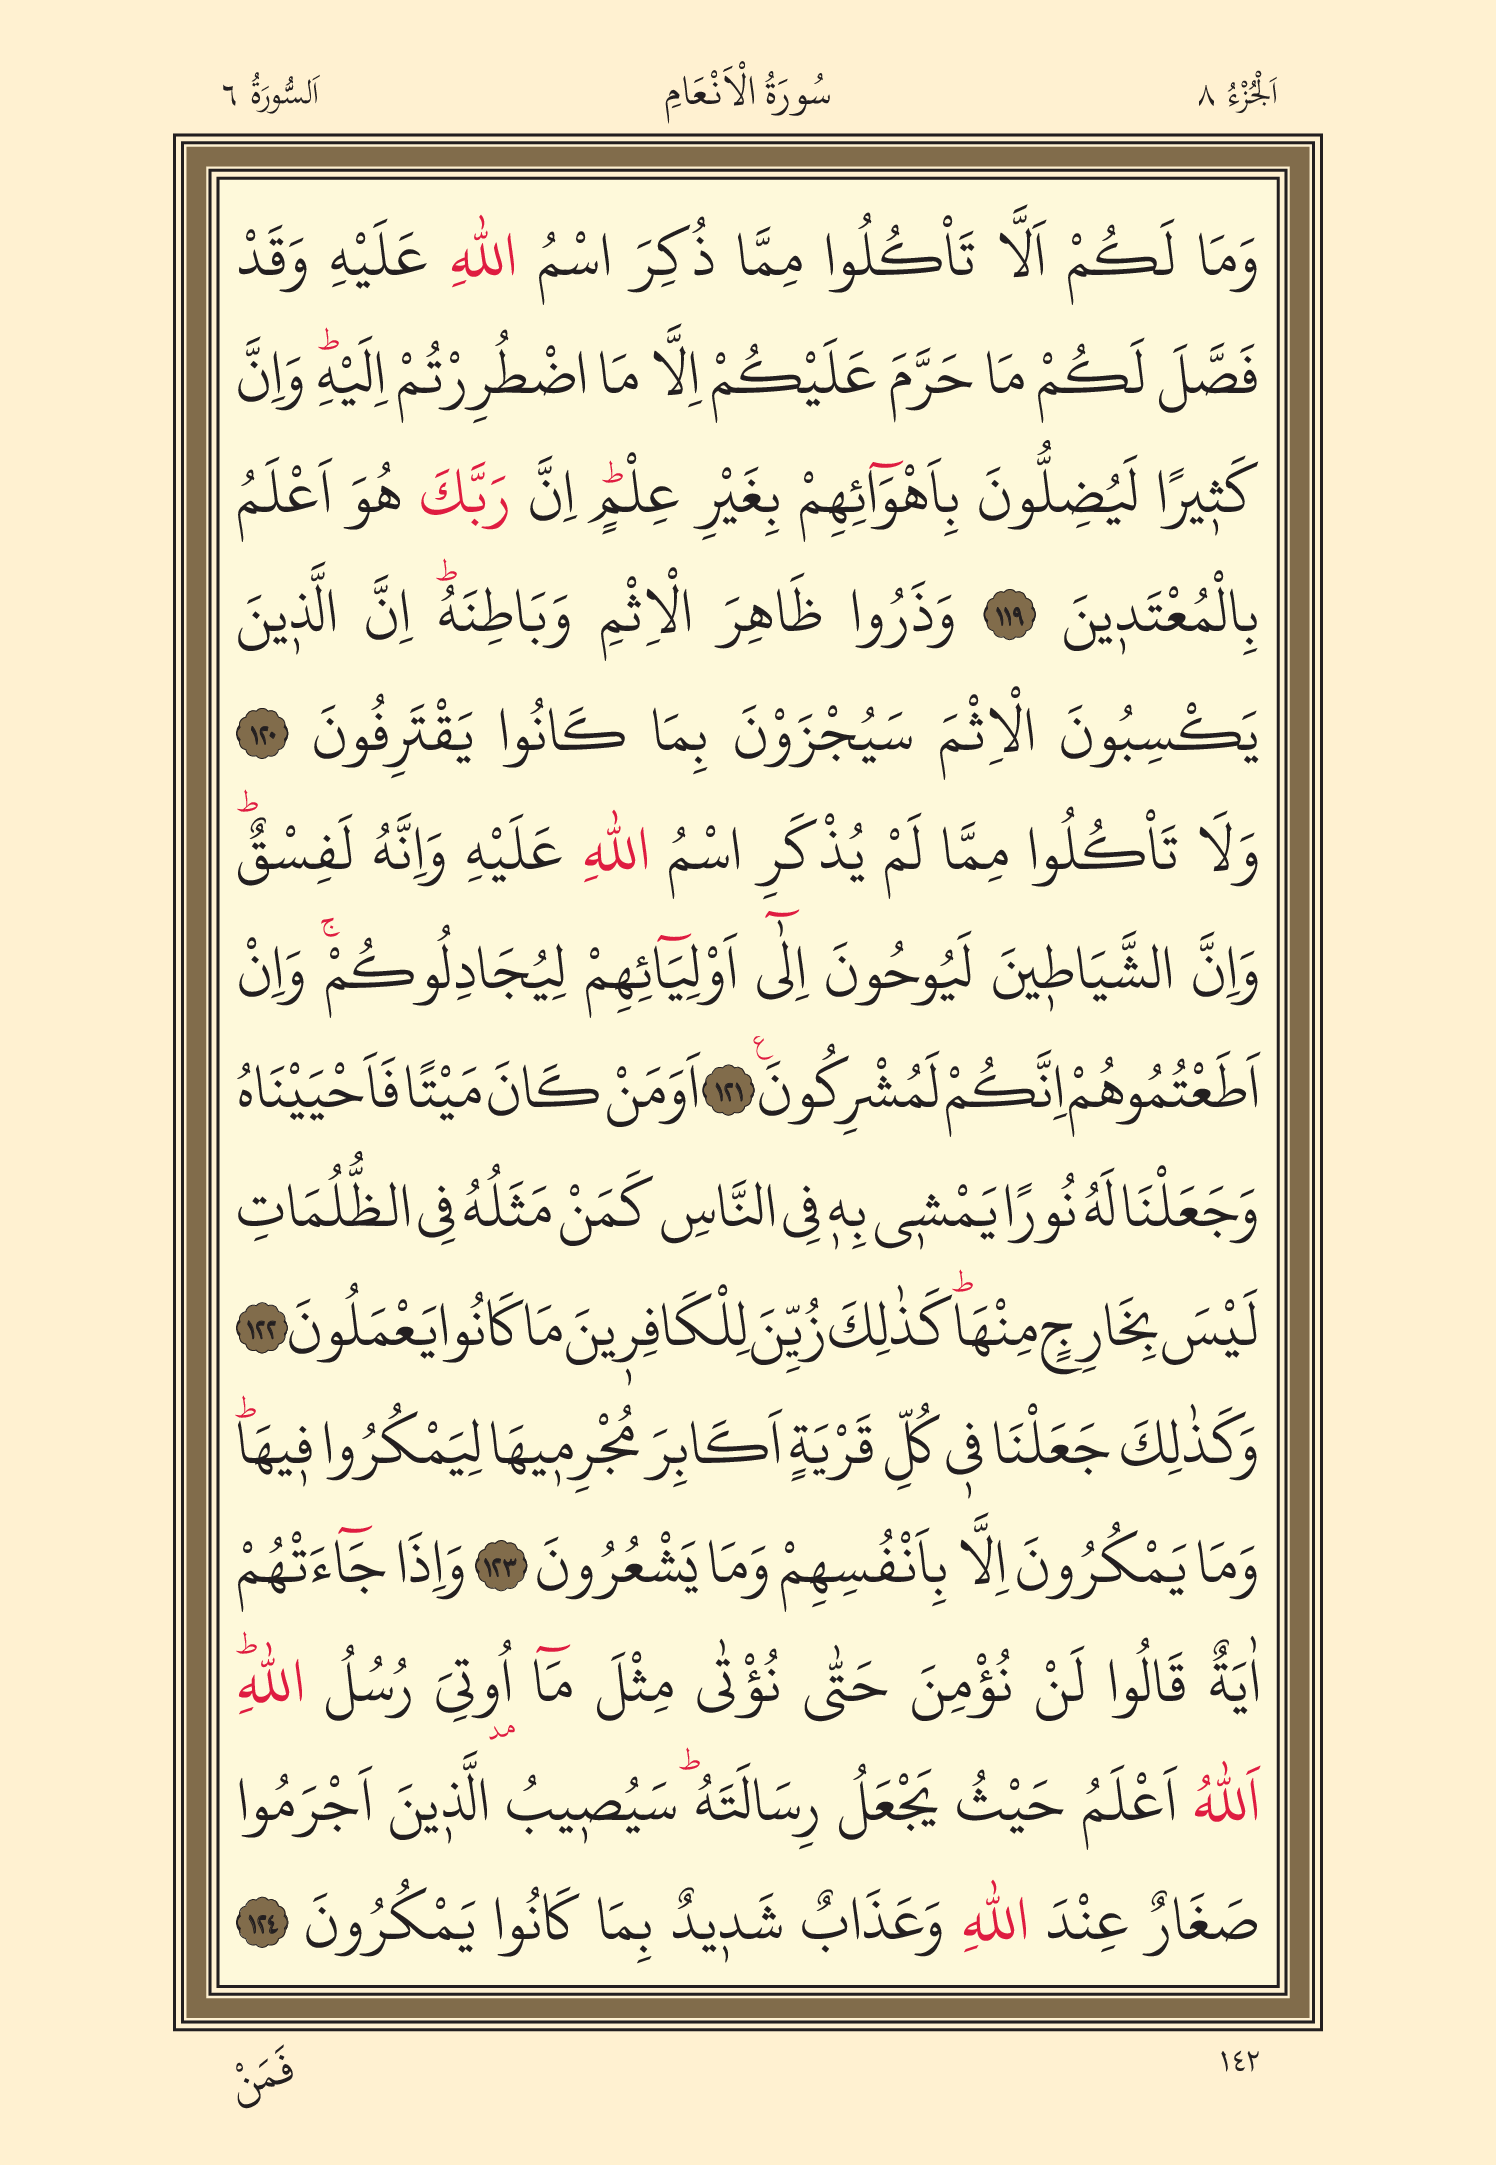 اَلْجُزْءُ ٨ سُورَةُ الْاَنْعَامِ اَلسُّورَةُ ٦
وَمَا لَكُمْ اَلَّا تَأْكُلُوا مِمَّا ذُكِرَ اسْمُ اللّٰهِ عَلَيْهِ وَقَدْ
فَصَّلَ لَكُمْ مَا حَرَّمَ عَلَيْكُمْ اِلَّا مَا اضْطُرِرْتُمْ اِلَيْهِۜ وَاِنَّ
كَث۪يرًا لَيُضِلُّونَ بِاَهْوَٓائِهِمْ بِغَيْرِ عِلْمٍۜ اِنَّ رَبَّكَ هُوَ اَعْلَمُ
بِالْمُعْتَد۪ينَ ١١٩ وَذَرُوا ظَاهِرَ الْاِثْمِ وَبَاطِنَهُۜ اِنَّ الَّذ۪ينَ
يَكْسِبُونَ الْاِثْمَ سَيُجْزَوْنَ بِمَا كَانُوا يَقْتَرِفُونَ ١٢٠
وَلَا تَأْكُلُوا مِمَّا لَمْ يُذْكَرِ اسْمُ اللّٰهِ عَلَيْهِ وَاِنَّهُ لَفِسْقٌۜ
وَاِنَّ الشَّيَاط۪ينَ لَيُوحُونَ اِلٰٓى اَوْلِيَٓائِهِمْ لِيُجَادِلُوكُمْۚ وَاِنْ
اَطَعْتُمُوهُمْ اِنَّكُمْ لَمُشْرِكُونَ ع ١٢١ اَوَمَنْ كَانَ مَيْتًا فَاَحْيَيْنَاهُ
وَجَعَلْنَا لَهُ نُورًا يَمْش۪ى بِه۪ فِى النَّاسِ كَمَنْ مَثَلُهُ فِى الظُّلُمَاتِ
لَيْسَ بِخَارِجٍ مِنْهَاۜ كَذٰلِكَ زُيِّنَ لِلْكَافِر۪ينَ مَا كَانُوا يَعْمَلُونَ ١٢٢
وَكَذٰلِكَ جَعَلْنَا ف۪ى كُلِّ قَرْيَةٍ اَكَابِرَ مُجْرِم۪يهَا لِيَمْكُرُوا ف۪يهَاۜ
وَمَا يَمْكُرُونَ اِلَّا بِاَنْفُسِهِمْ وَمَا يَشْعُرُونَ ١٢٣ وَاِذَا جَٓاءَتْهُمْ
اٰيَةٌ قَالُوا لَنْ نُؤْمِنَ حَتّٰى نُؤْتٰى مِثْلَ مَٓا اُو۫تِىَ رُسُلُ اللّٰهِۜ
مد
اَللّٰهُ اَعْلَمُ حَيْثُ يَجْعَلُ رِسَالَتَهُۜ سَيُص۪يبُ الَّذ۪ينَ اَجْرَمُوا
صَغَارٌ عِنْدَ اللّٰهِ وَعَذَابٌ شَد۪يدٌ بِمَا كَانُوا يَمْكُرُونَ ١٢٤
١٤٢ فَمَنْ